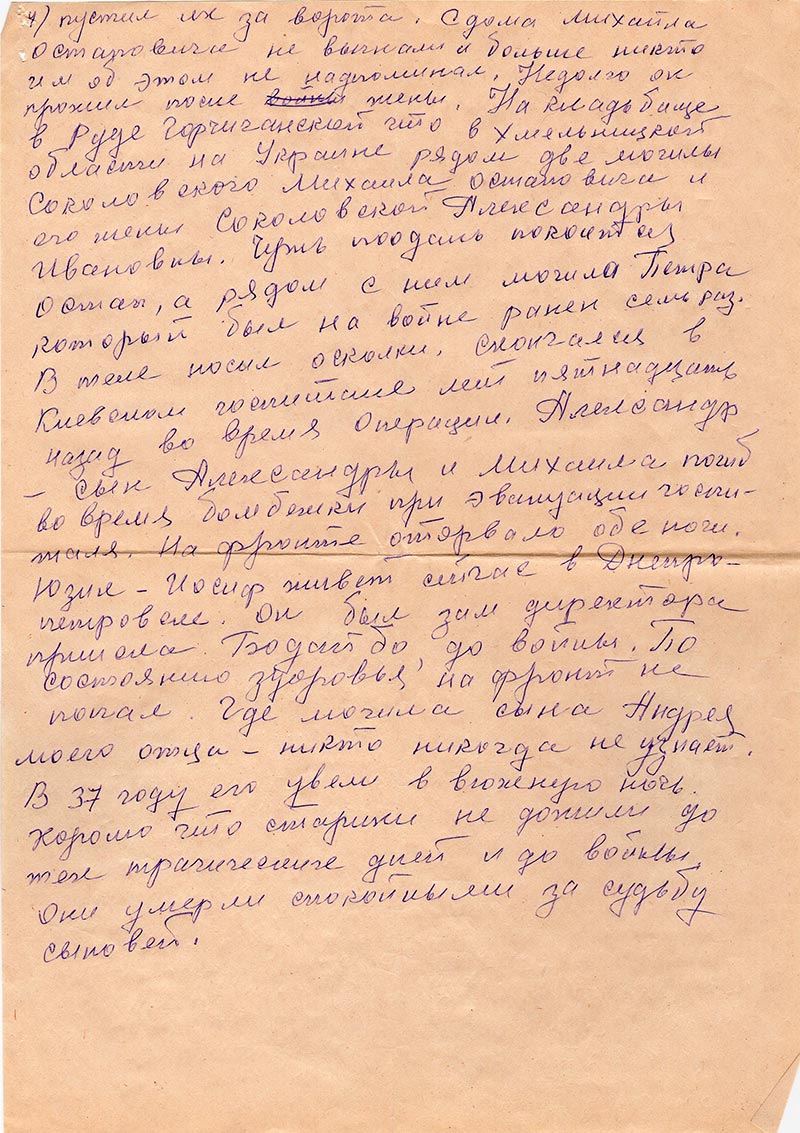 4) пустил их за ворота. С дома Михаила
Остаповича не выгнали и больше никто
им об этом не надпоминал. Недолго он
прожил после войны жены. На кладьбище
в Руде Горчичанской что в Хмельницкой
области на Украине рядом две могилы
Соколовского Михаила Остаповича и
его жены Соколовской Александры
Ивановны. Чуть поодаль покоится
Остап, а рядом с ним могила Петра
который был на войне ранен семь раз.
В теле носил осколки. Скончался в
Киевском госпитале лет пятнадцать
назад во время операции. Александр
– сын Александры и Михаила погиб
во время бомбежки при эвакуации госпи-
таля. На фронте оторвало обе ноги.
Юзик – Иосиф живет сейчас в Днепро-
петровске. Он был зам директора
приіска Бодайбо, до войны. По
состоянию здоровья, на фронт не
попал. Где могила сына Андрея
моего отца – никто никогда не узнает.
В 37 году его увели в вюженую ночь.
Хорошо что старики не дожили до
тех трагических дней и до войны.
Они умерли спокойными за судьбу
сыновей.